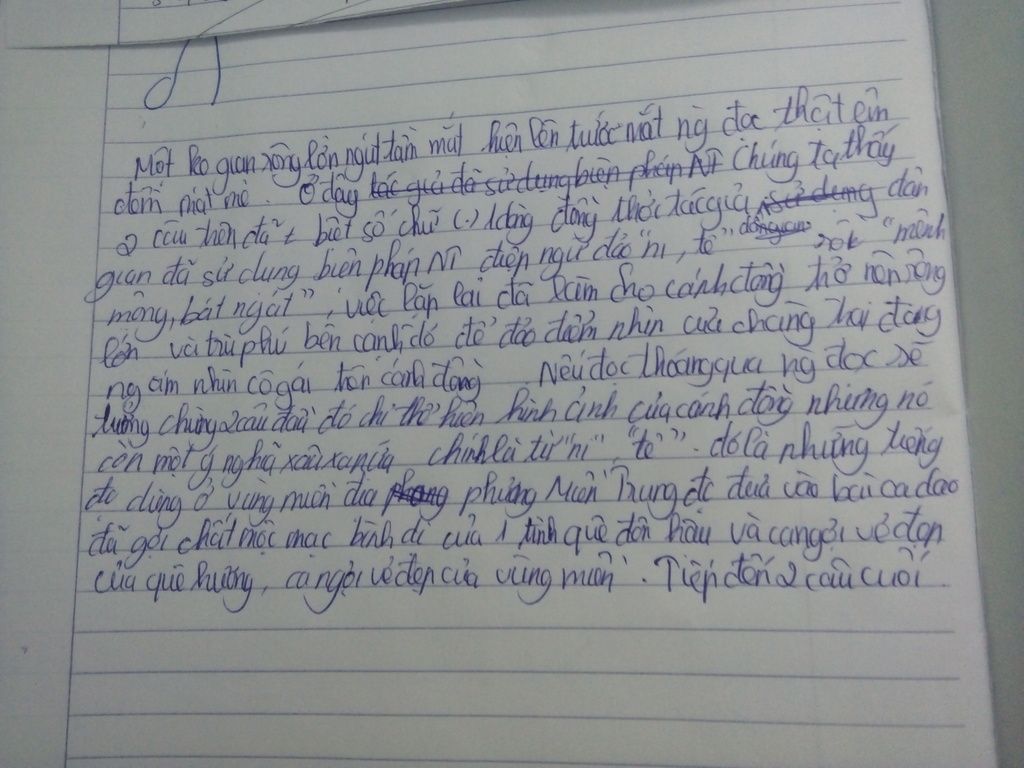 Một ko gian rộng lớn ngút tầm mắt hiện lên trước mắt ng đọc thật êm
đềm mát mẻ. Ở đây tác giả đã sử dụng biện pháp NT chúng ta thấy
2 câu trên đã t biệt số chữ (-) 1 dòng đồng thời tác giả sử dụng dân
gian đã sử dụng biện pháp NT điệp ngữ đảo "ni, tê" đồng gian rồi "mênh
mông, bát ngát", việc lặp lại đã làm cho cánh đồng trở nên rộng
lớn và trù phú bên cạnh đó để đảo điểm nhìn của chàng trai đang
ngắm nhìn cô gái trên cánh đồng. Nếu đọc thoáng qua ng đọc sẽ
tưởng chừng 2 câu đầu đó chỉ thể hiện hình ảnh của cánh đồng nhưng nó
còn một ý nghĩa sâu xa nữa chính là từ "ni", "tê". đó là những tiếng
đc dùng ở vùng miền địa phương Miền Trung đc đưa vào bài ca dao
đã gợi chất mộc mạc bình dị của 1 tình quê đôn hậu và ca ngợi vẻ đẹp
của quê hương, ca ngợi vẻ đẹp của vùng miền. Tiếp đến 2 câu cuối